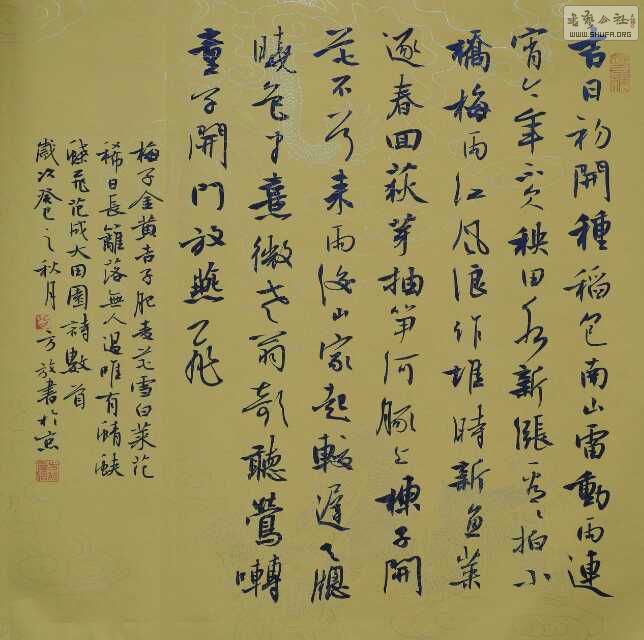 吉日初開種稻包南山雷動雨連
宵今年不欠秧田水新漲看看拍小
橋海雨江风浪作堆時新魚菜
逐春回荻芽抽笋河豚上楝子開
花石首来雨後山家起較遲天牕
曉色半熹微老翁欹聽鶯囀
童子開門放燕飛
梅子金黄杏子肥麦花雪白菜花
稀日長籬落無人過唯有蜻蛺
蛺飛范成大田園詩數首
歲次癸巳之秋月方放書於京
书艺公社
WWW.SHUFA.ORG